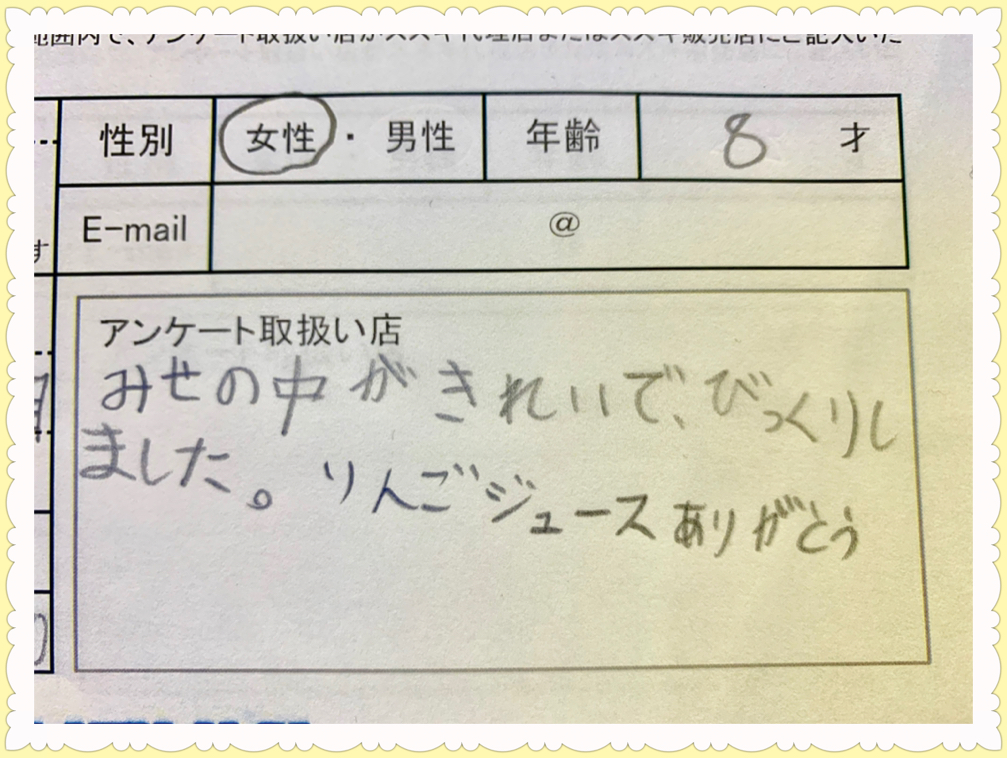 範囲内で、アンケート取扱い店がスズキ代理店またはスズキ販売店にご記入いた
性別 女性・男性 年齢 8 才
す
E-mail @
アンケート取扱い店
みせの中がきれいで、びっくりし
ました。りんごジュースありがとう